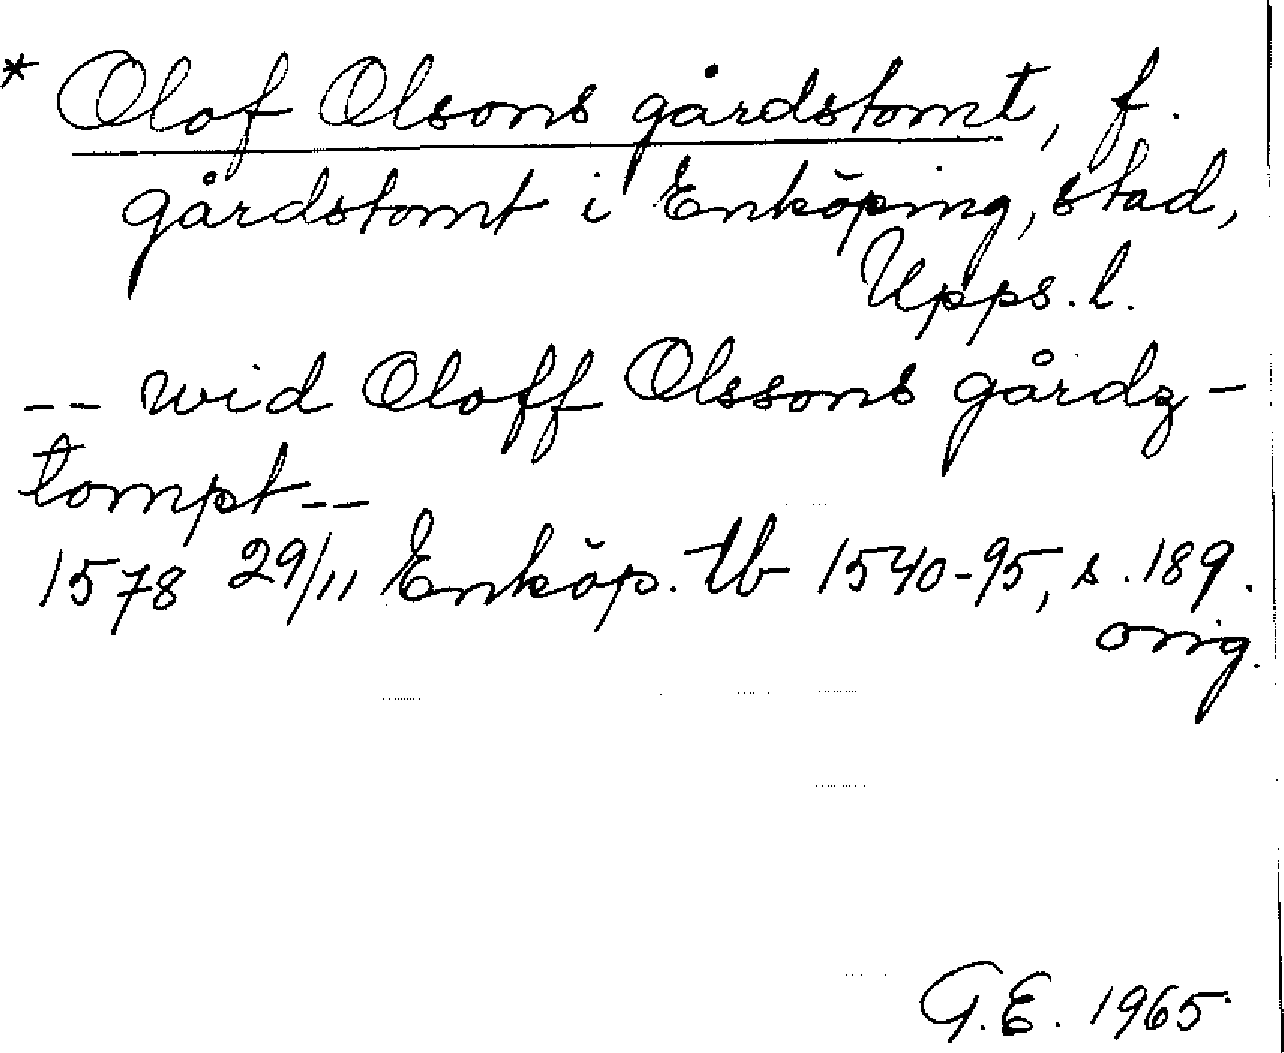 * Olof Olsons gårdstomt, f.
gårdstomt i Enköping, stad,
Upps. l.
-- wid Oloff Olssons gårdz-
tompt --
1578 29/11 Enköp. tb 1540-95, s. 189.
orig.
G.E. 1965